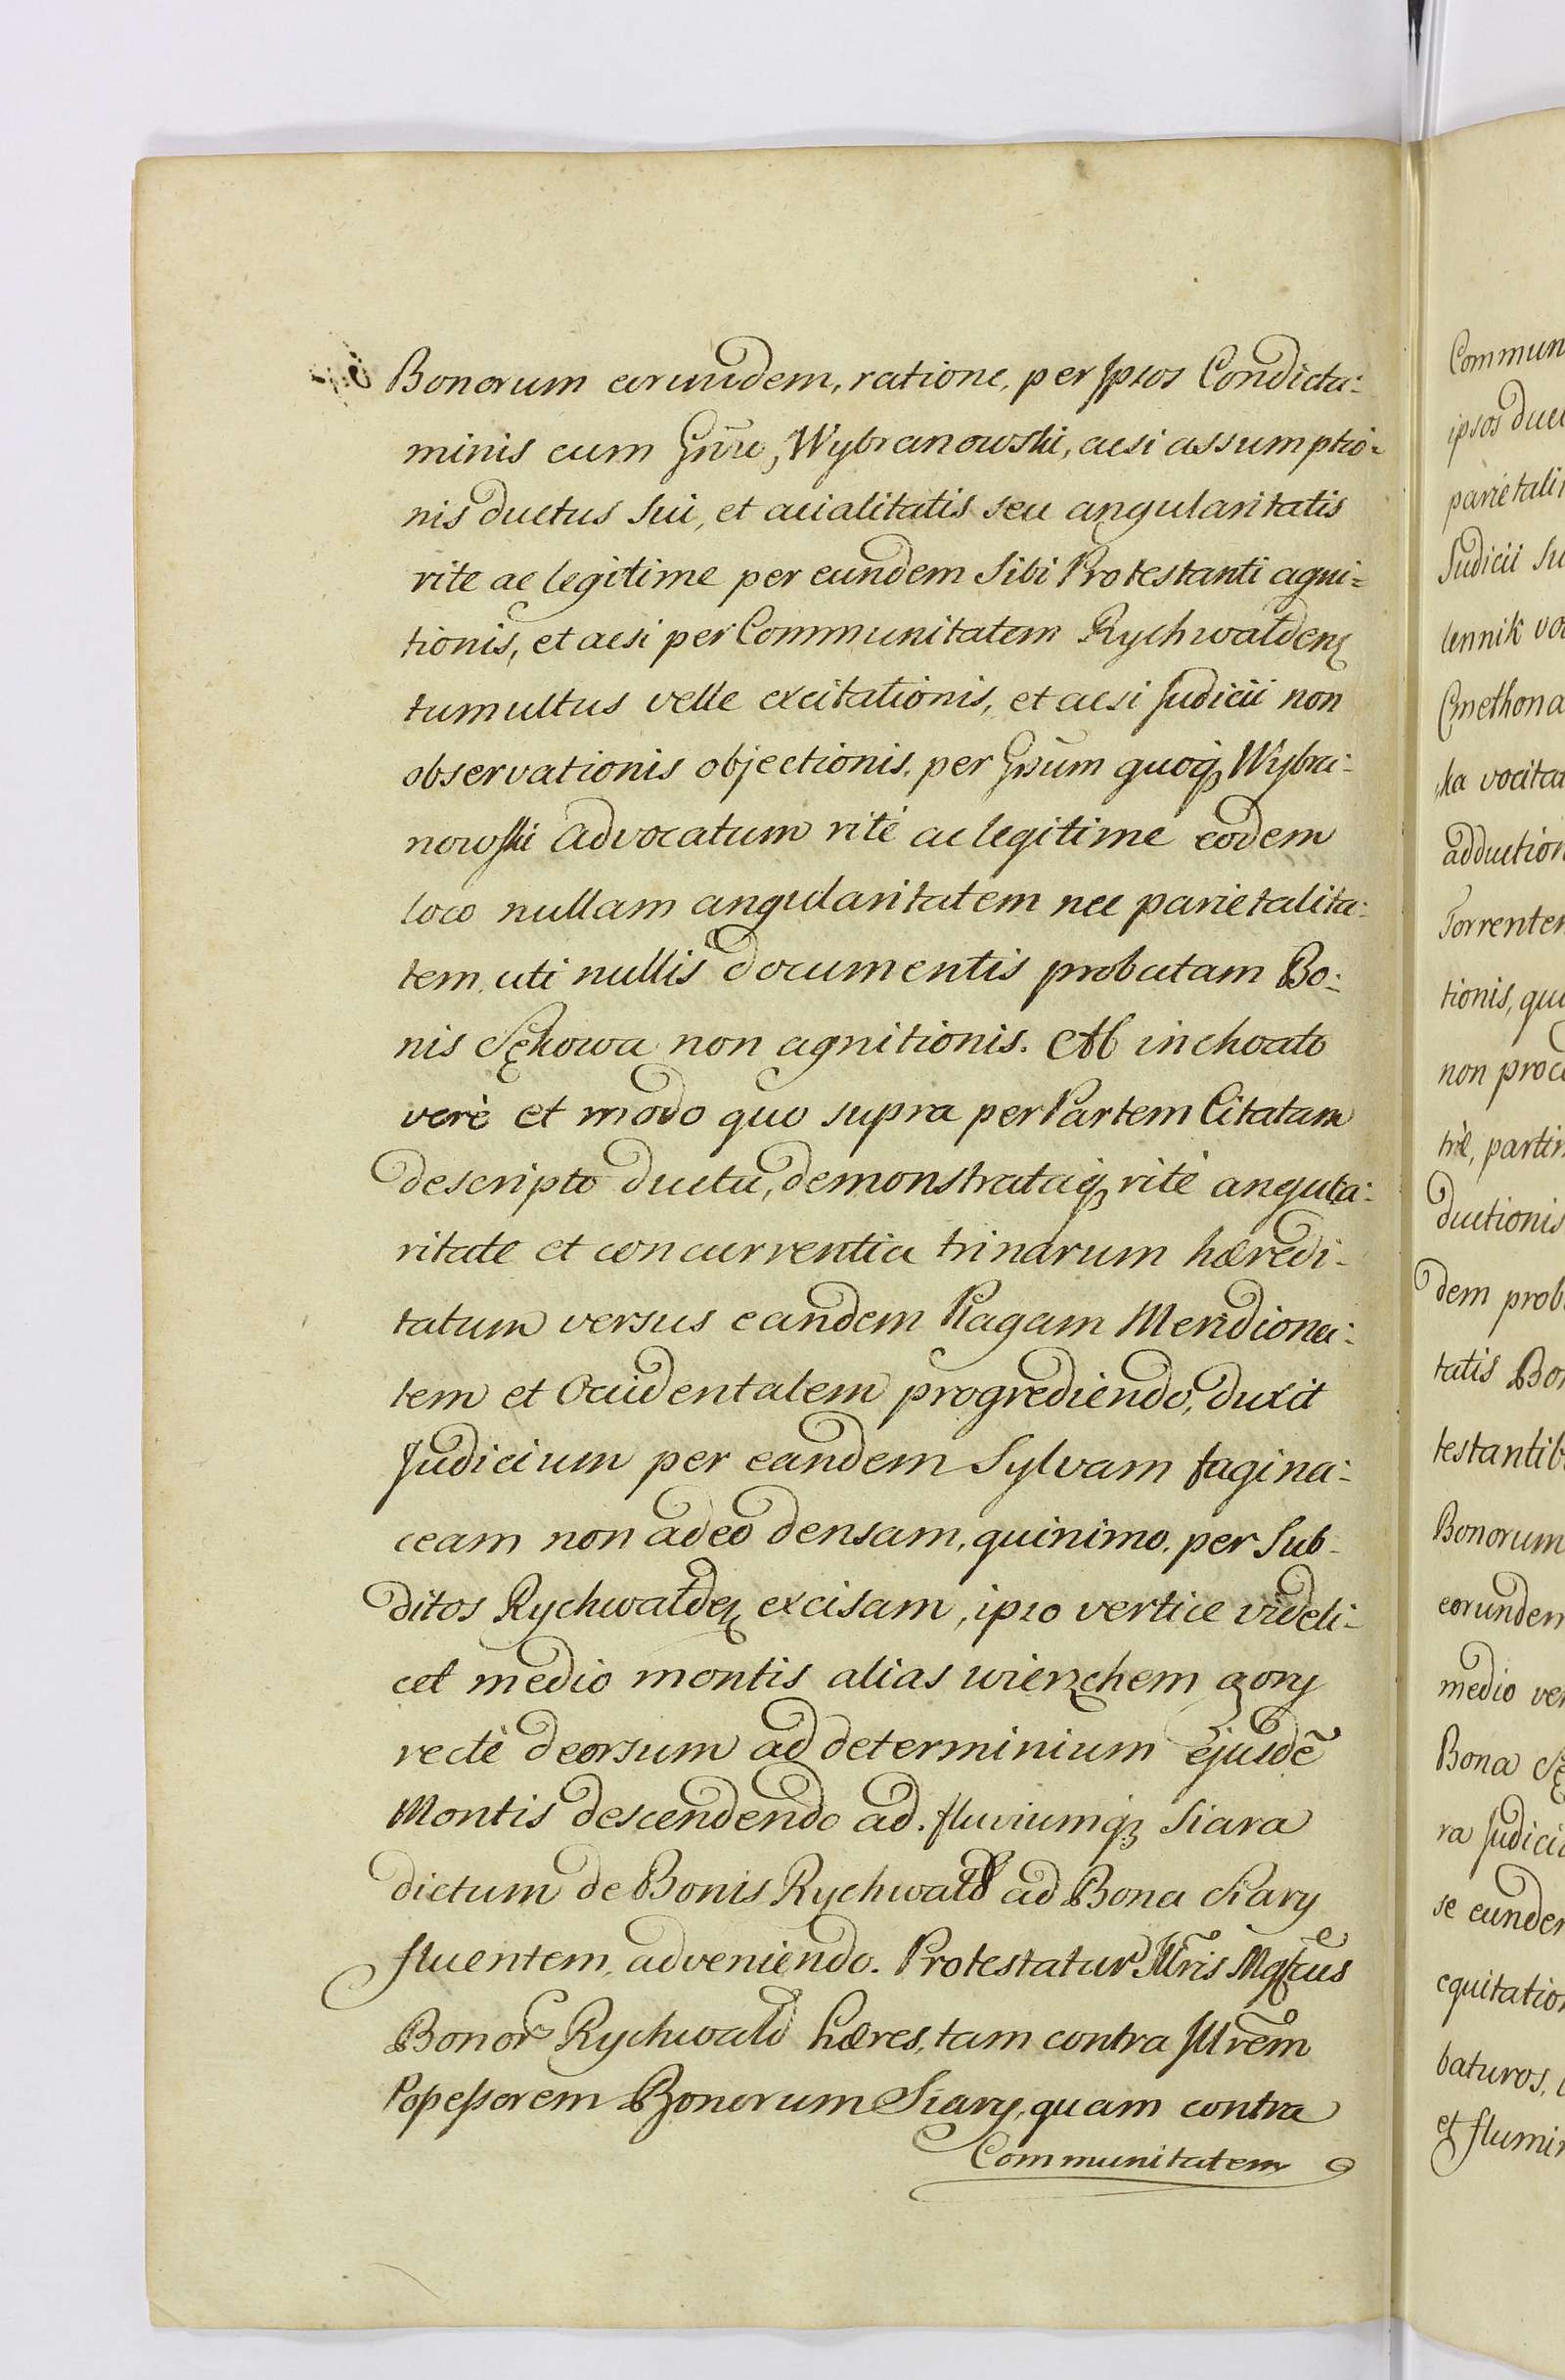 Bonorum eorundem, ratione, per Ipsos Condicta:
minis cum Gñru, Wybranowski, acsi assumptio:
nis ductus sui, et acialitatis seu angularitatis
rite ac legitime per eundem Sibi Protestanti agni=
tionis, et acsi per Communitatem Rychwaldenꝫ
tumultus velle excitationis, et acsi Judicii non
observationis objectionis, per Gñrum quoqꝫ Wybra:
nowski Advocatum rité ac legitime eodem
loco nullam angularitatem nec parietalita:
tem, uti nullis documentis probatam Bo:
nis Sękowa non agnitionis. Ab inchoato
verè et modo quo supra per Partem Citatam
descripto ductu, demonstrataqꝫ rité angula:
ritate et concurrentia trinarum hæredi-
tatum versus eandem Plagam Meridiona:
lem et Occidentalem progrediendo, duxit
Judicium per eandem Sylvam fagina:
ceam non adeo densam, quinimo, per Sub-
ditos Rychwaldeꝫ excisam, ipso vertice videli-
cet medio montis alias wierzchem gory
rectè deorsum ad determinium ejusdẽ
Montis descendendo ad fluviumqꝫ Siara
dictum de Bonis Rychwald ad Bona Siary
fluentem, adveniendo. Protestatur Illris Mgfcus
Bonor Rychwald hæres, tam contra Illrem
Possessorem Bonorum Siary, quam contra
Communitatem
Commun
ipsos duc
parietali
Judicii Su
lennik vo
Cmethona
ka vocita
adduction
Torrentem
tionis, qu
non proc
trè, partim
ductionis
dem prob
tatis Bo
testantib
Bonorum
eorundem
medio ver
Bona Sę
ra Judici
se eunde
equitatio
baturos,
et flumin